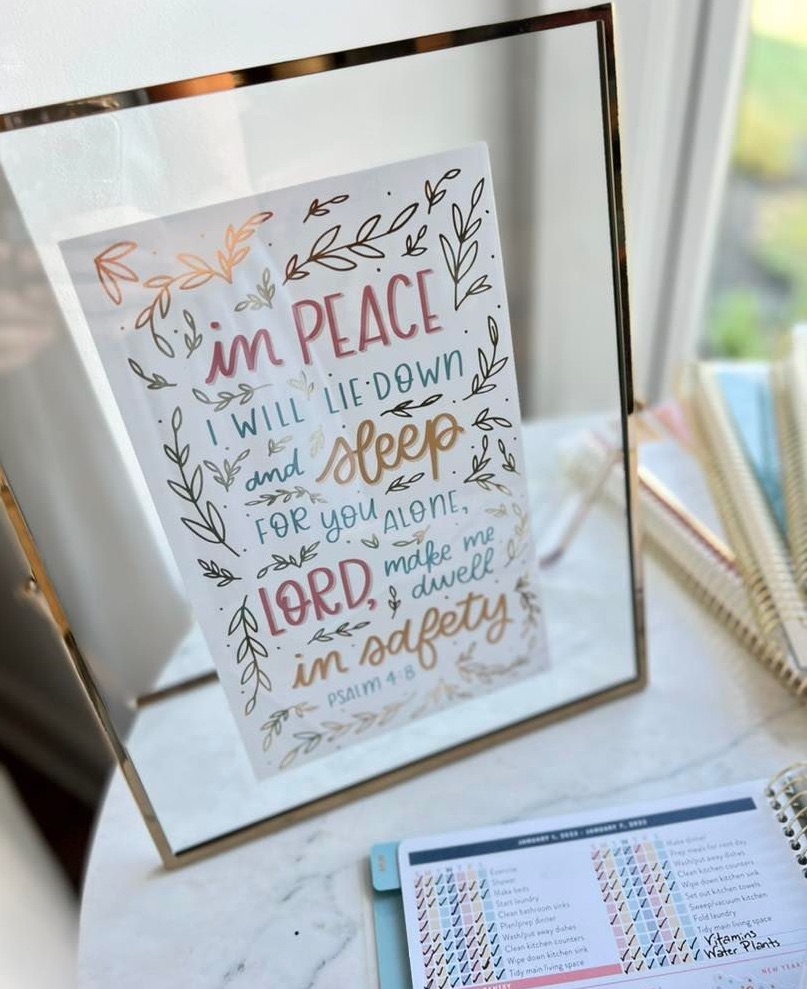 in PEACE
I WILL LIE DOWN
and sleep
FOR YOU ALONE,
LORD, make me
dwell
in safety
PSALM 4:8
JANUARY 1, 2023 - JANUARY 7, 2023
Exercise
Shower
Make beds
Start laundry
Clean bathroom sinks
Plan/prep dinner
Wash/put away dishes
Clean kitchen counters
Wipe down kitchen sink
Tidy main living space
Make dinner
Prep meals for next day
Wash/put away dishes
Clean kitchen counters
Wipe down kitchen sink
Set out kitchen towels
Sweep/vacuum kitchen
Fold laundry
Tidy main living space
Vitamins
Water Plants
NEW YEAR